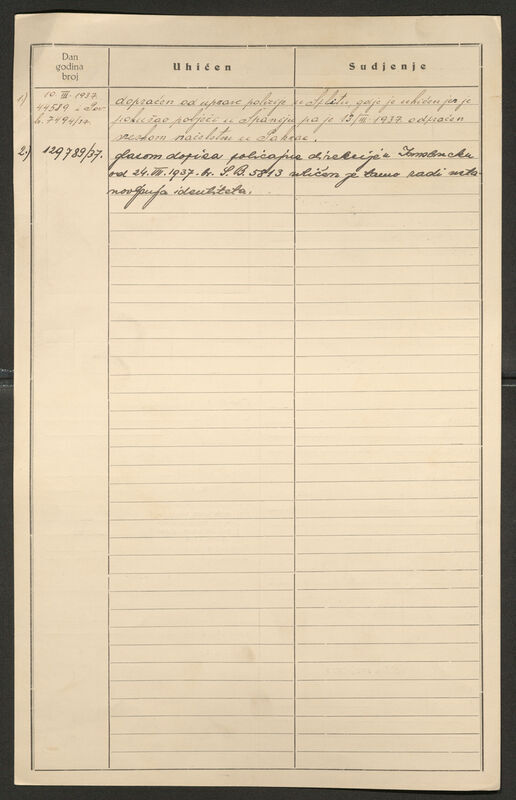 Dan
godina
broj
Uhićen
Sudjenje
1) 10. III. 1937.
44589 i Pov.
br. 7494/37.
dopraćen od uprave policije u Splitu, gdje je uhićen jer je
pokušao poljeći u Španiju pa je 13/III 1937 otpraćen
sreskom načelstvu u Pakrac.
2.) 129789/37.
Glasom dopisa policajne direkcije u
od 24. VII. 1937. br. S.B. 5813 uhićen je tamo radi usta-
novljenja identiteta.